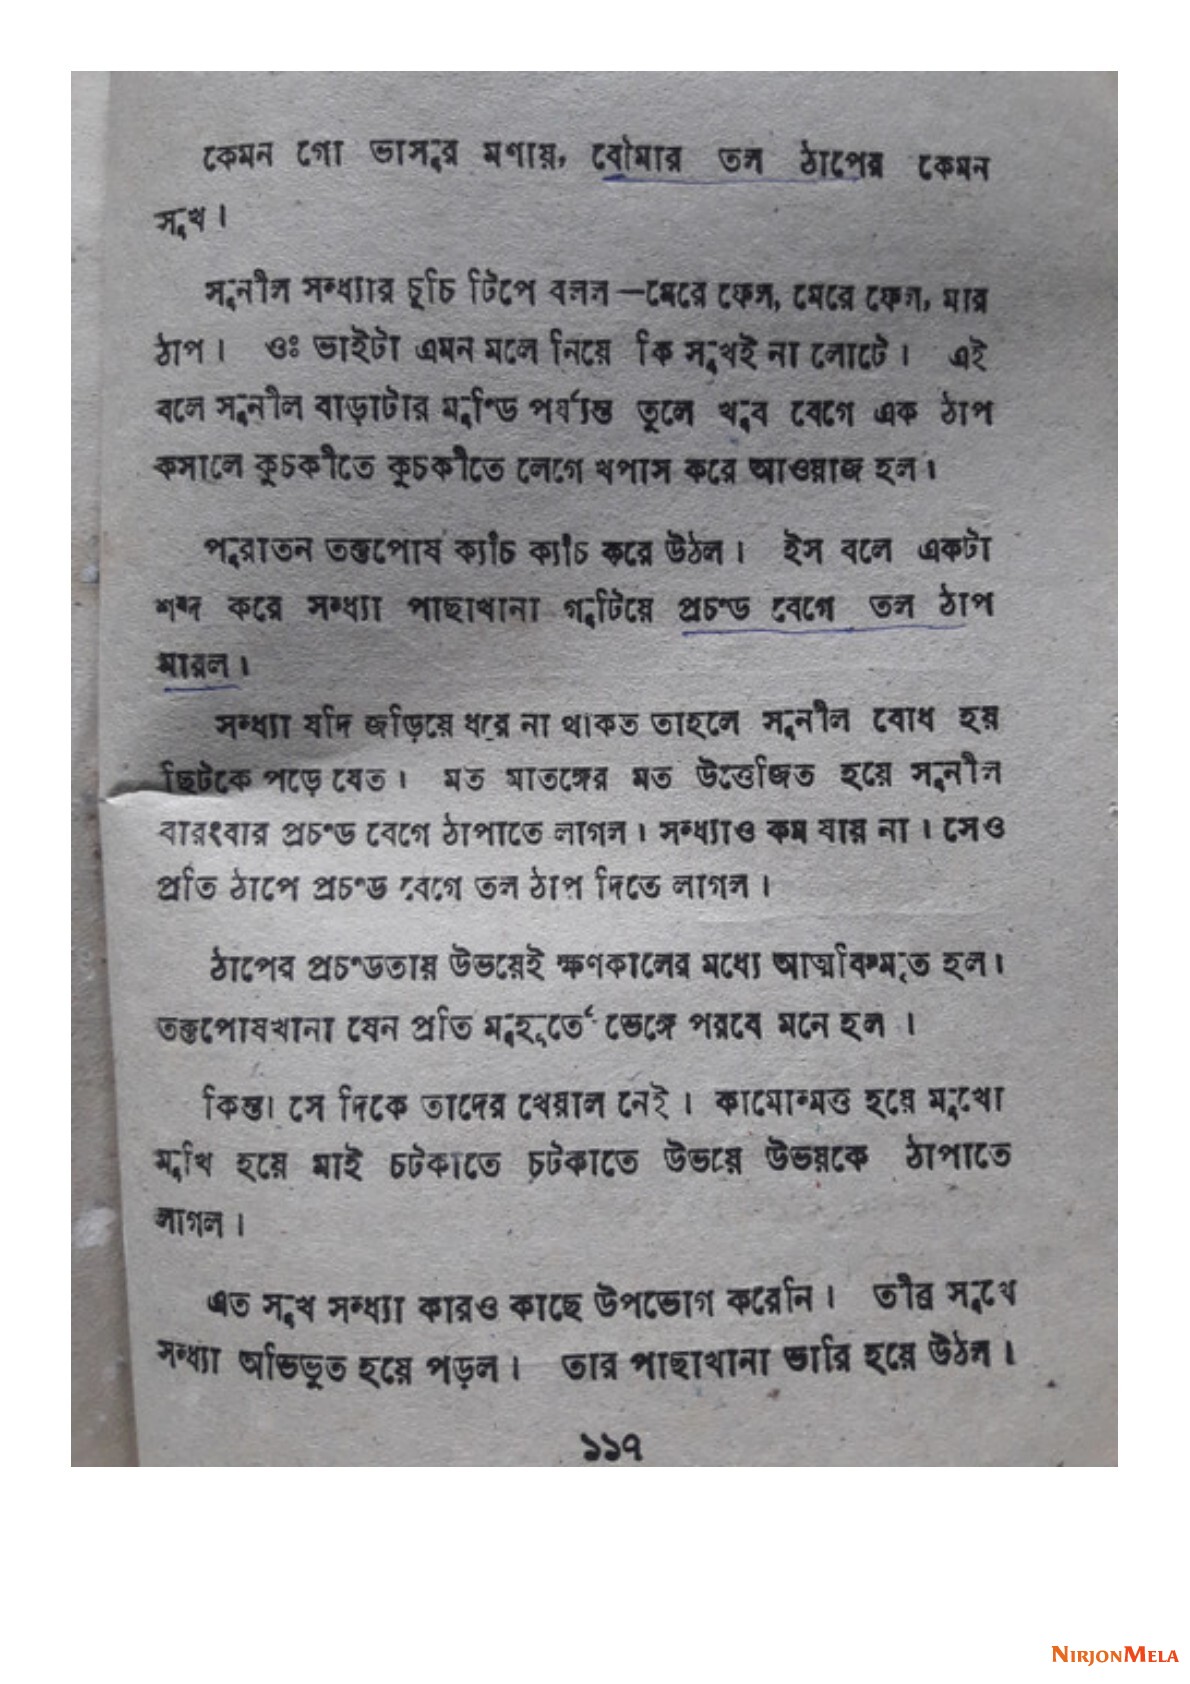 কেমন গো ভাসুর মশায়, বৌমার তল ঠাপের কেমন
সুখ।
সুনীল সন্ধ্যার চুচি টিপে বলল—মেরে ফেল, মেরে ফেল, মার
ঠাপ। ওঃ ভাইটা এমন মলে নিয়ে কি সুখই না লোটে। এই
বলে সুনীল বাড়াটার মুণ্ডি পর্য্যন্ত তুলে খুব বেগে এক ঠাপ
কসালে কুচকীতে কুচকীতে লেগে থপাস করে আওয়াজ হল।
পুরাতন তক্তপোষ ক্যাঁচ ক্যাঁচ করে উঠল। ইস বলে একটা
শব্দ করে সন্ধ্যা পাছাখানা গুটিয়ে প্রচণ্ড বেগে তল ঠাপ
মারল।
সন্ধ্যা যদি জড়িয়ে ধরে না থাকত তাহলে সুনীল বোধ হয়
ছিটকে পড়ে যেত। মত মাতঙ্গের মত উত্তেজিত হয়ে সুনীল
বারংবার প্রচণ্ড বেগে ঠাপাতে লাগল। সন্ধ্যাও কম যায় না। সেও
প্রতি ঠাপে প্রচণ্ড বেগে তল ঠাপ দিতে লাগল।
ঠাপের প্রচণ্ডতায় উভয়েই ক্ষণকালের মধ্যে আত্মবিস্মৃত হল।
তক্তপোষখানা যেন প্রতি মুহূর্তে ভেঙ্গে পরবে মনে হল।
কিন্তা সে দিকে তাদের খেয়াল নেই। কামোন্মত্ত হয়ে মুখো
মুখি হয়ে মাই চটকাতে চটকাতে উভয়ে উভয়কে ঠাপাতে
লাগল।
এত সুখ সন্ধ্যা কারও কাছে উপভোগ করেনি। তীব্র সুখে
সন্ধ্যা অভিভূত হয়ে পড়ল। তার পাছাখানা ভারি হয়ে উঠল।
১১৭
NIRJONMELA